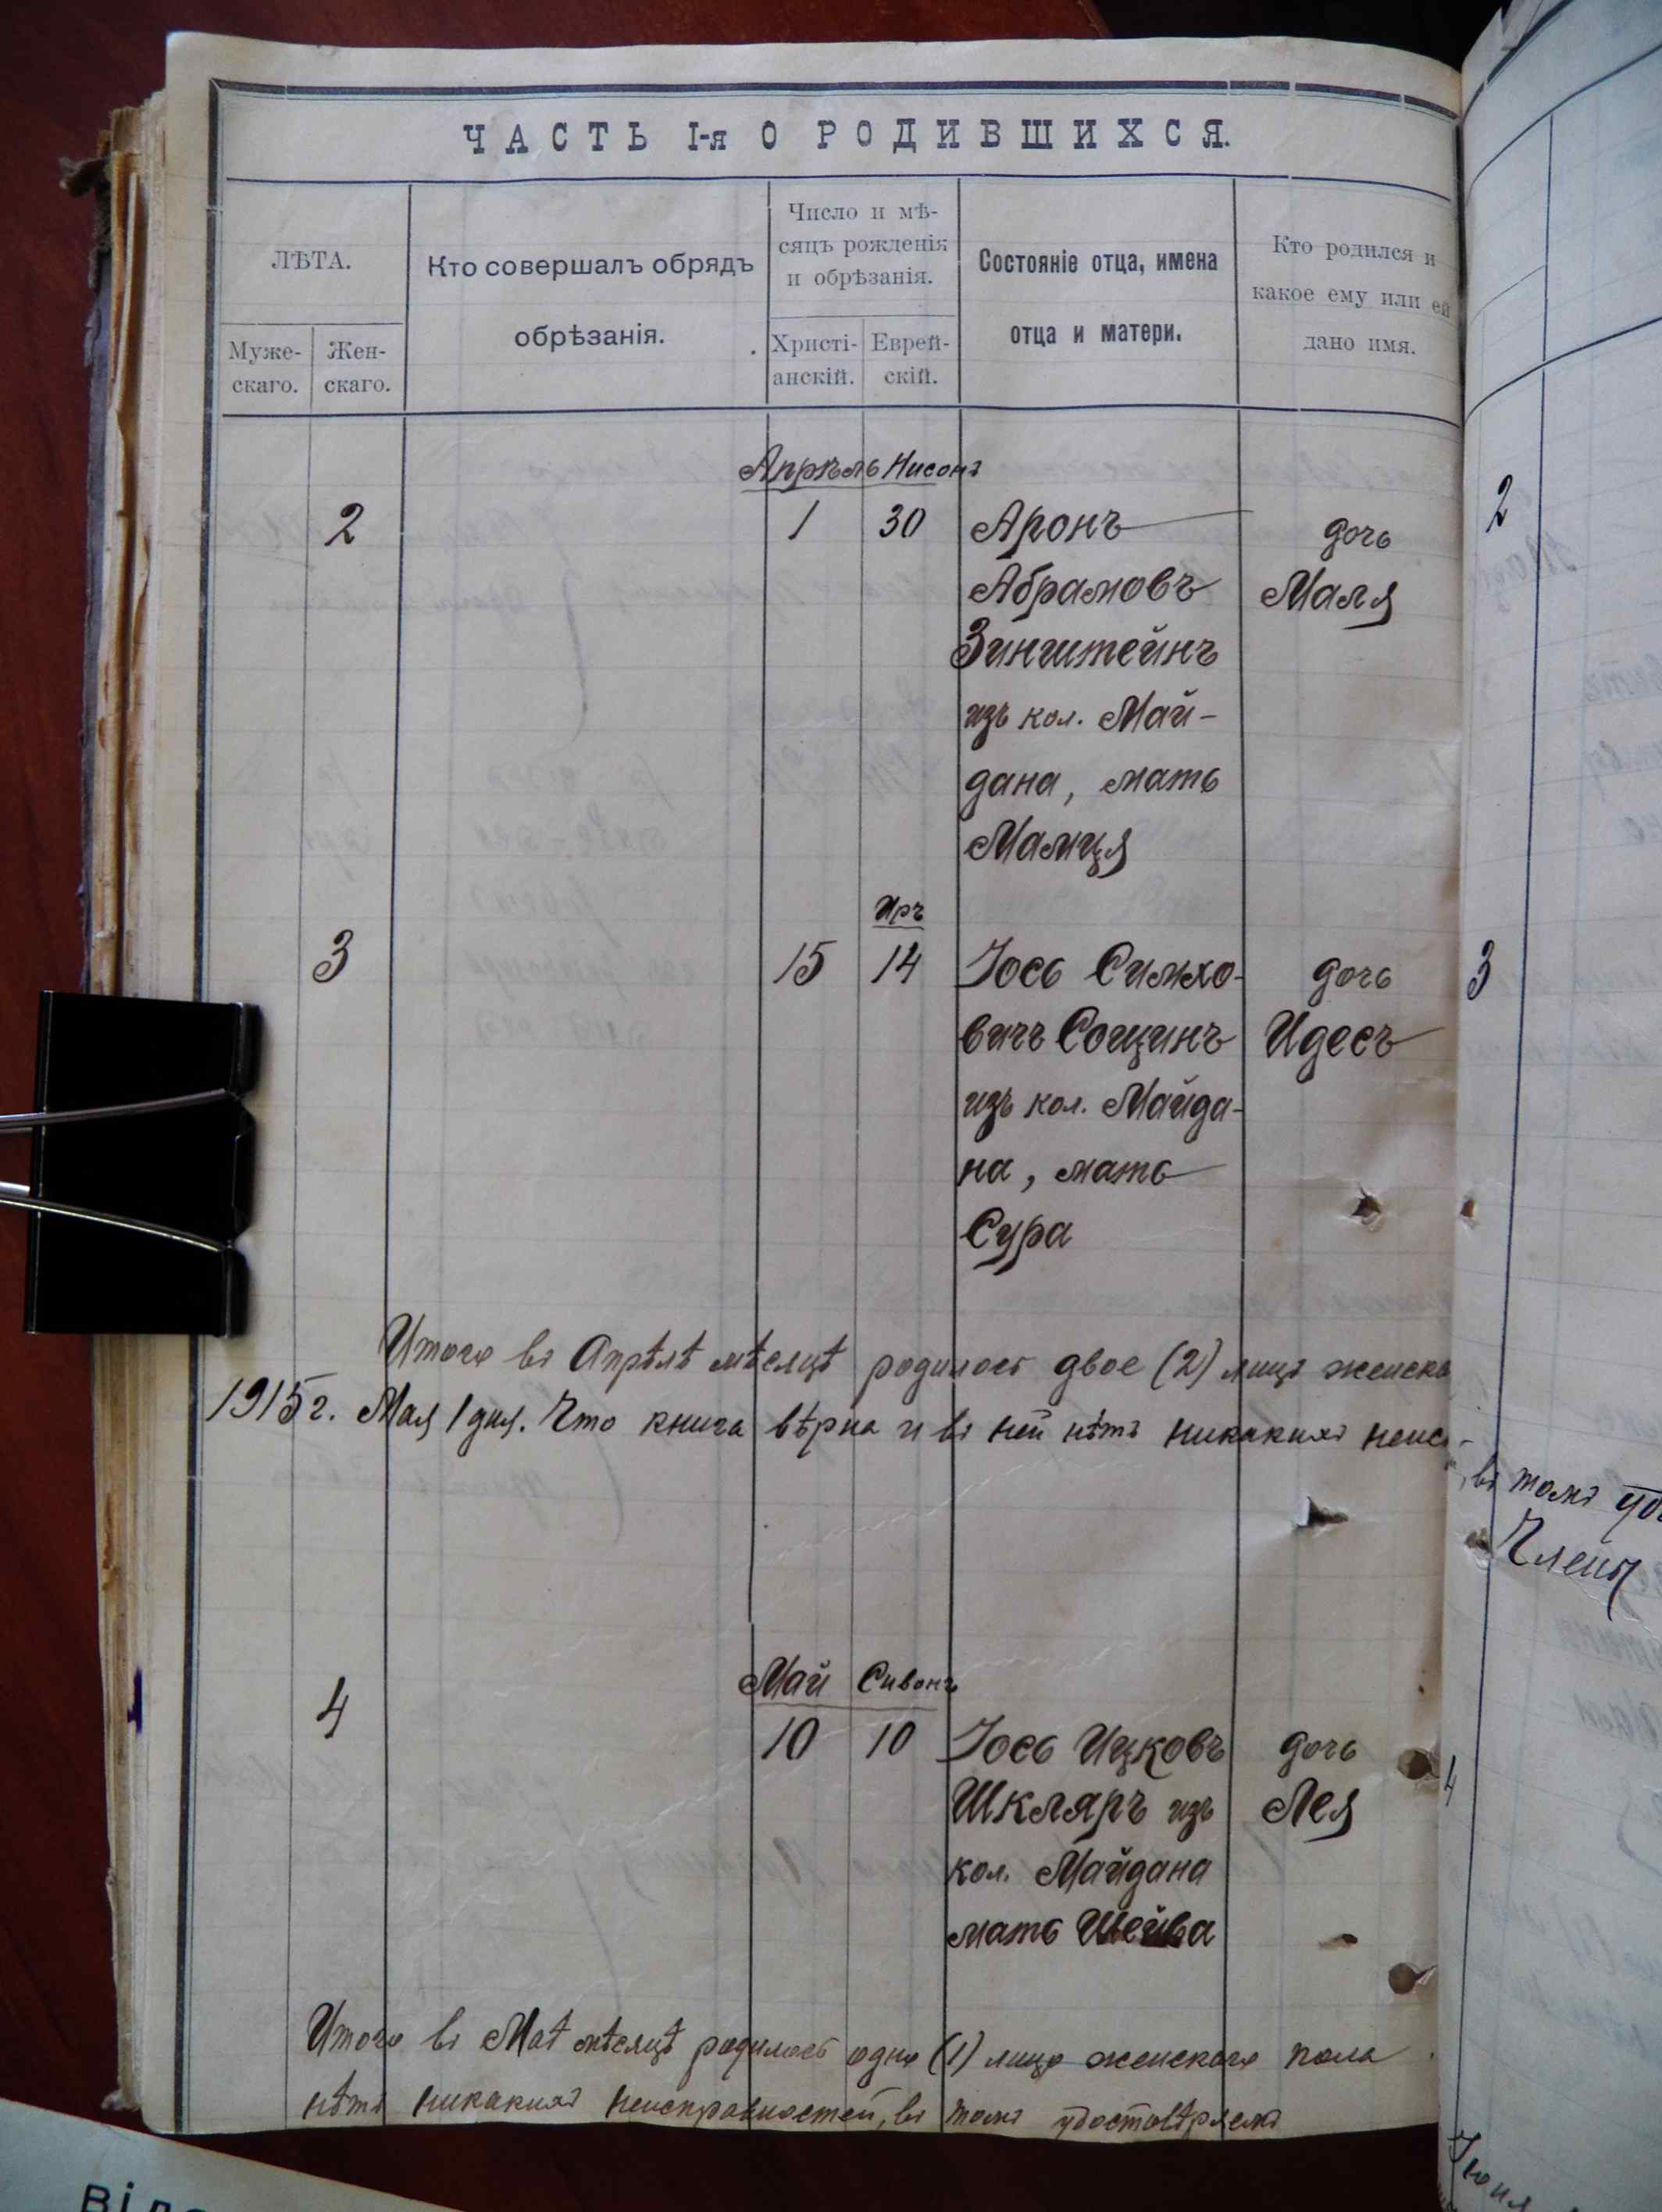 ЧАСТЬ I-я О РОДИВШИХСЯ.
ЛѢТА.
Муже-
скаго.
Жен-
скаго.
Кто совершалъ обрядъ
обрѣзанія.
Число и мѣ-
сяцъ рожденія
и обрѣзанія.
Христі-
анскій.
Еврей-
скій.
Состояніе отца, имена
отца и матери.
Кто родился и
какое ему или ей
дано имя.
Апрѣль Нисонъ
2 1 30 Аронъ дочь 2
Абрамовъ Маля
Зингштейнъ
изъ кол. Май-
дана, мать
Малця
Иръ
3 15 14 Іось Симхо- дочь 3
вичъ Сощинъ Идесъ
изъ кол. Майда-
на, мать
Сура
Итого въ Апрѣлѣ мѣсяцѣ родилось двое (2) лицъ женска
1915 г. Мая 1 дня. Что книга вѣрна и въ ней нѣтъ никакихъ неис-
въ томъ удо
Члены
Май Сивонъ
4 10 10 Іось Ицковъ дочь 4
Шкляръ изъ Лея
кол. Майдана
мать Шейва
Итого въ Маѣ мѣсяцѣ родилось одно (1) лицо женскаго пола
нѣтъ никакихъ неисправностей, въ томъ удостовѣряемъ
Іюня
від